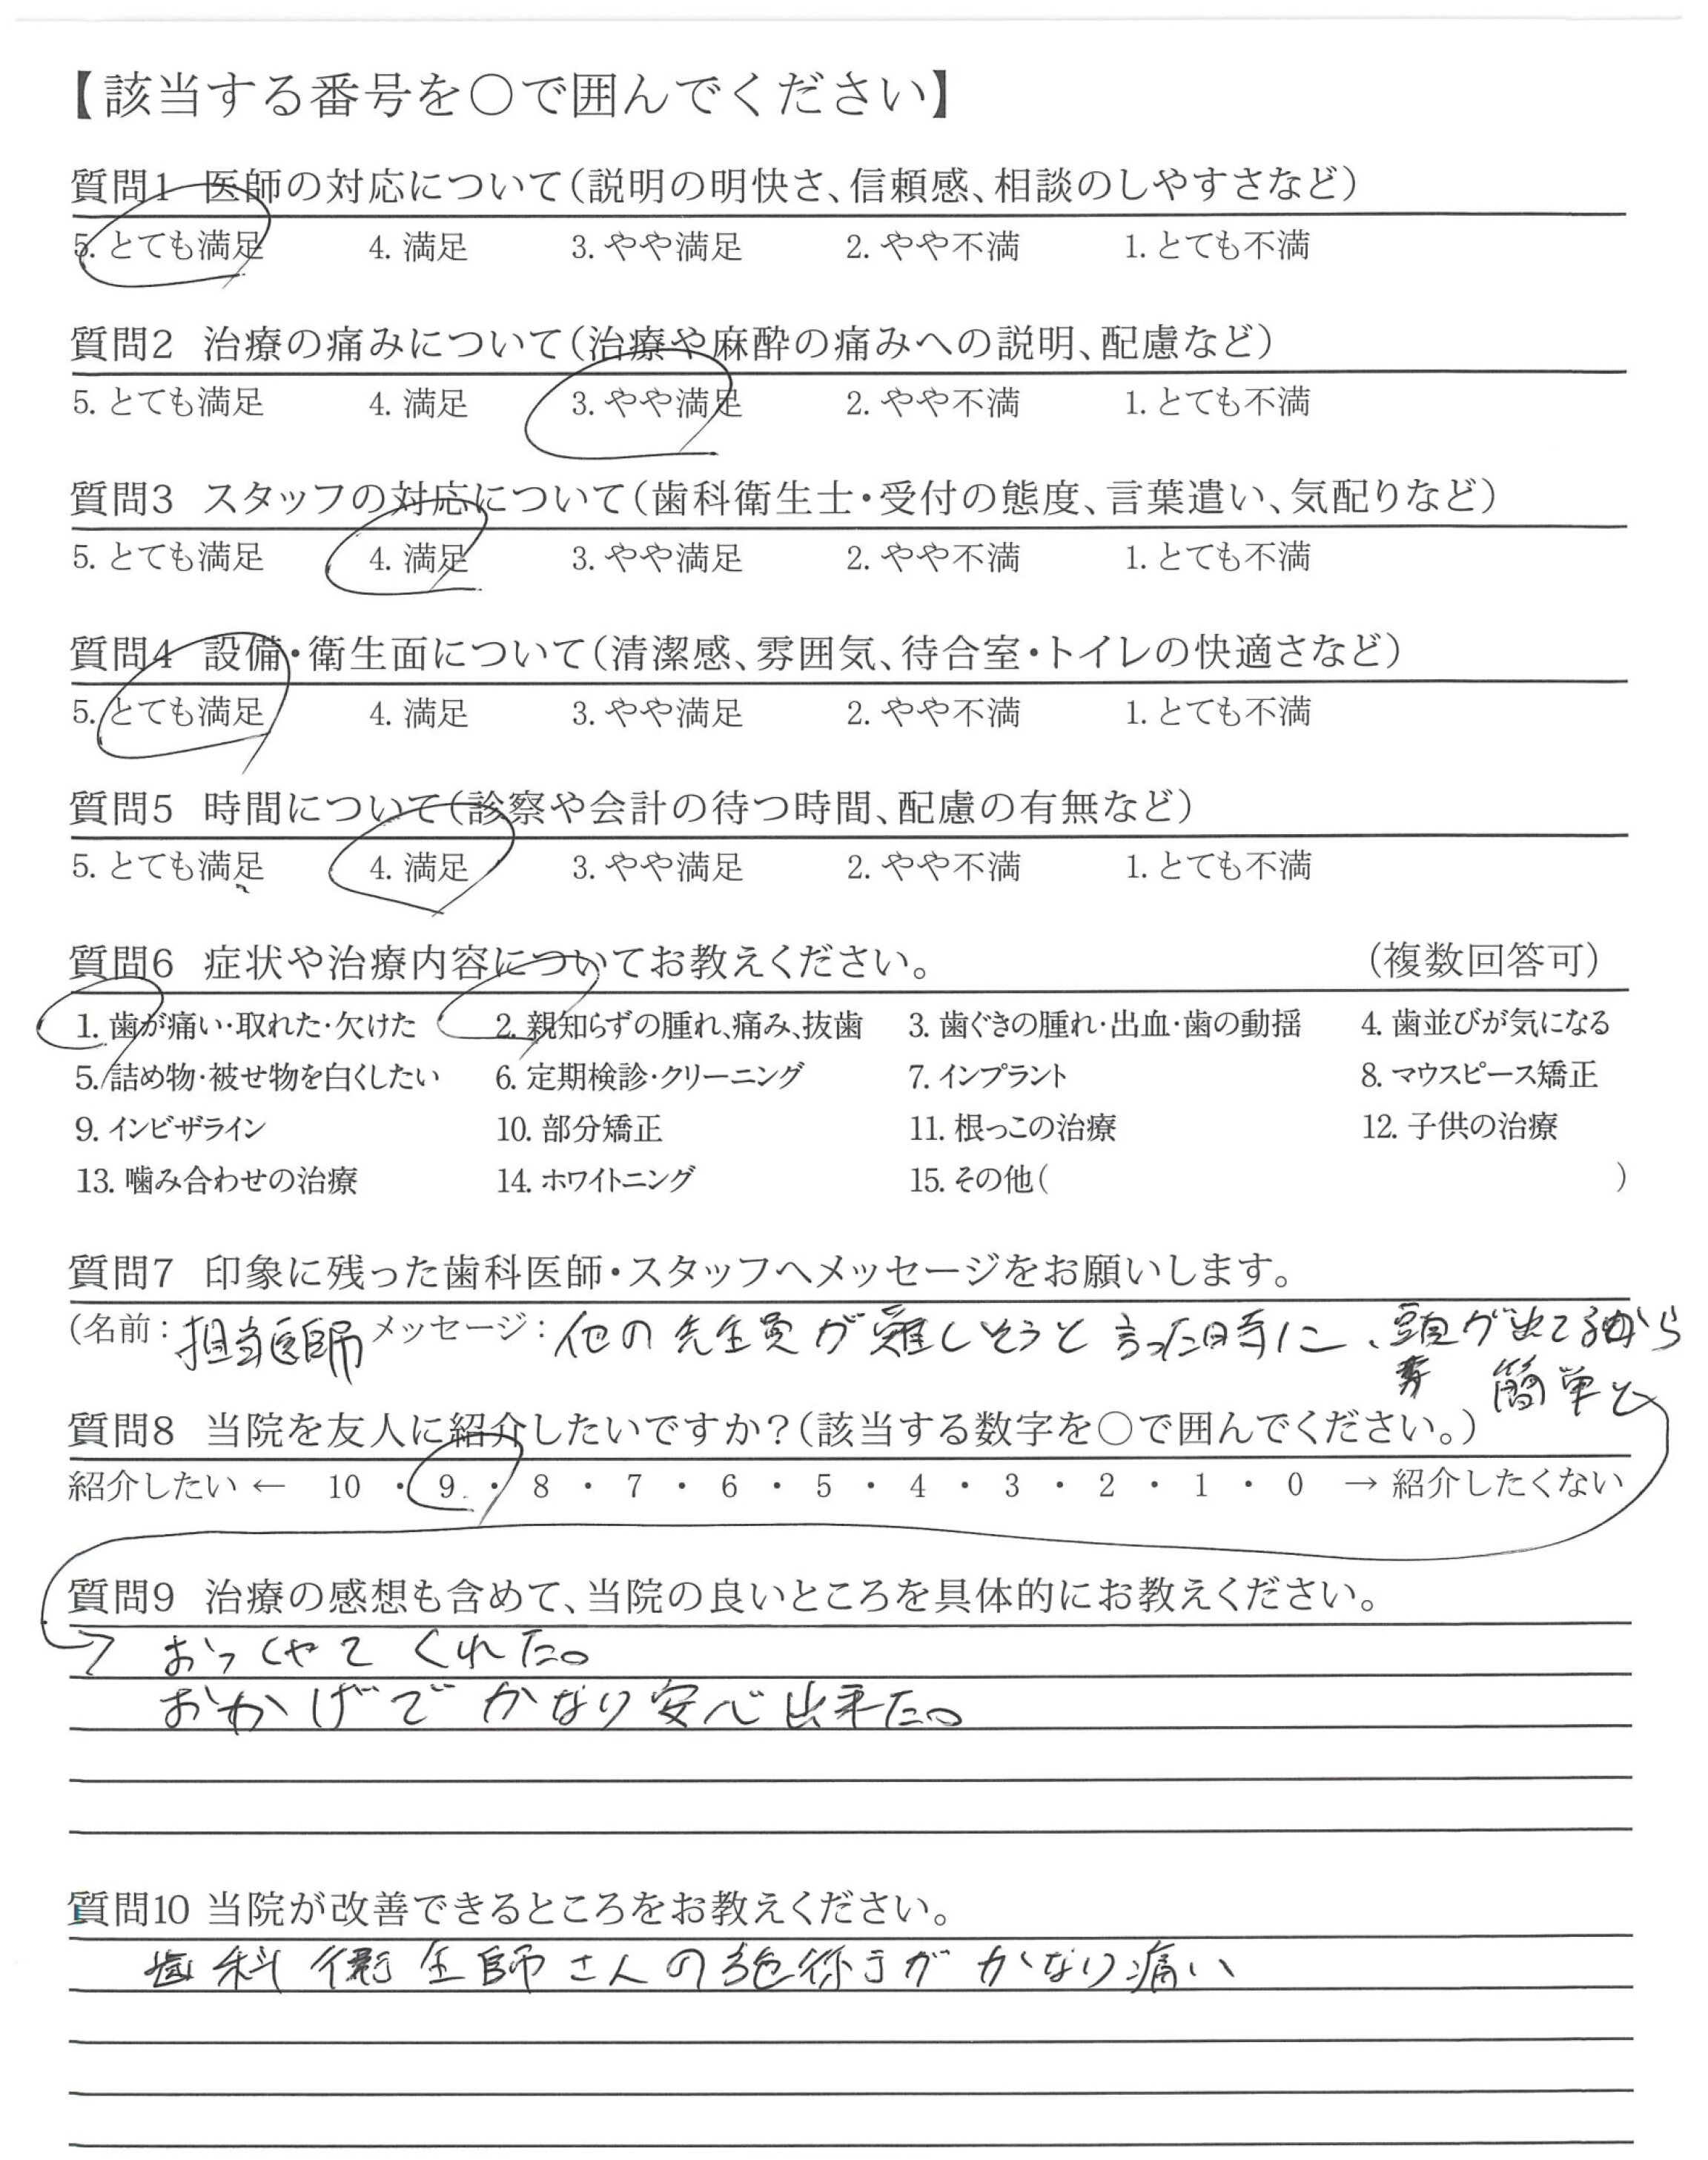 【該当する番号を○で囲んでください】
質問1 医師の対応について(説明の明快さ、信頼感、相談のしやすさなど)
5. とても満足 4. 満足 3. やや満足 2. やや不満 1. とても不満
質問2 治療の痛みについて(治療や麻酔の痛みへの説明、配慮など)
5. とても満足 4. 満足 3. やや満足 2. やや不満 1. とても不満
質問3 スタッフの対応について(歯科衛生士・受付の態度、言葉遣い、気配りなど)
5. とても満足 4. 満足 3. やや満足 2. やや不満 1. とても不満
質問4 設備・衛生面について(清潔感、雰囲気、待合室・トイレの快適さなど)
5. とても満足 4. 満足 3. やや満足 2. やや不満 1. とても不満
質問5 時間について(診察や会計の待つ時間、配慮の有無など)
5. とても満足 4. 満足 3. やや満足 2. やや不満 1. とても不満
質問6 症状や治療内容についてお教えください。 (複数回答可)
1. 歯が痛い・取れた・欠けた 2. 親知らずの腫れ、痛み、抜歯 3. 歯ぐきの腫れ・出血・歯の動揺 4. 歯並びが気になる
5. 詰め物・被せ物を白くしたい 6. 定期検診・クリーニング 7. インプラント 8. マウスピース矯正
9. インビザライン 10. 部分矯正 11. 根っこの治療 12. 子供の治療
13. 噛み合わせの治療 14. ホワイトニング 15. その他( )
質問7 印象に残った歯科医師・スタッフへメッセージをお願いします。
(名前: 担当医師 メッセージ: 他の先生員が難しそうと言った時に、頭が出てるから
簡単と
質問8 当院を友人に紹介したいですか?(該当する数字を○で囲んでください。)
紹介したい ← 10 ・ 9 ・ 8 ・ 7 ・ 6 ・ 5 ・ 4 ・ 3 ・ 2 ・ 1 ・ 0 → 紹介したくない
質問9 治療の感想も含めて、当院の良いところを具体的にお教えください。
→ おっしゃてくれた。
おかげでかなり安心出来た。
質問10 当院が改善できるところをお教えください。
歯科衛生師さんの施術がかなり痛い